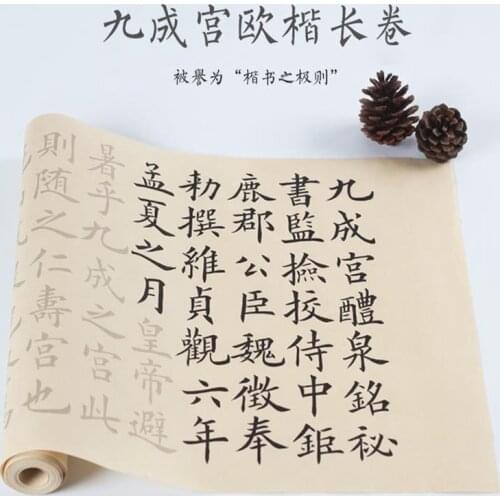 九成宫欧楷长卷
被誉为“楷书之极则”
九成宮醴泉銘祕
書監撿挍侍中鉅
鹿郡公臣魏徵奉
勑撰維貞觀六年
孟夏之月皇帝避
暑乎九成之宮此
則随之仁壽宮也